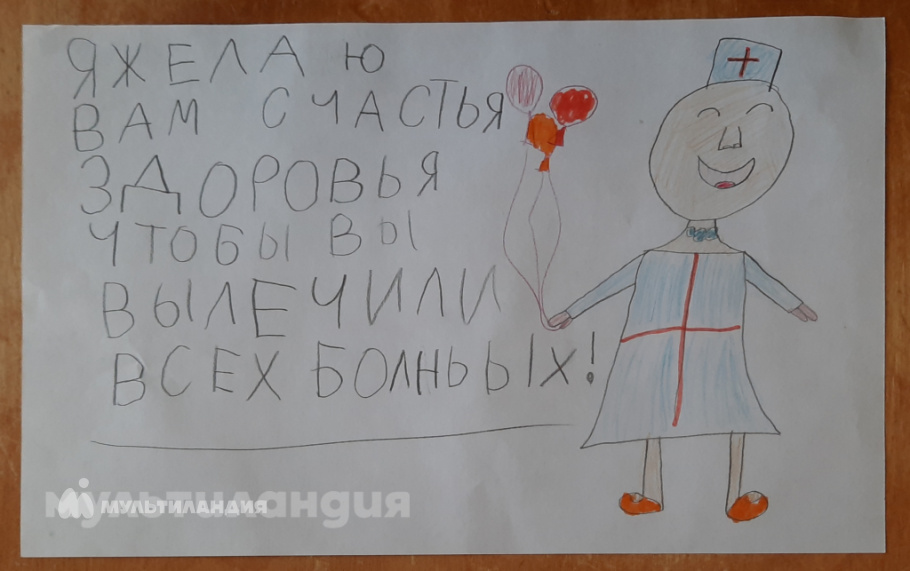 ЯЖЕЛАЮ
ВАМ СЧАСТЬЯ
ЗДОРОВЬЯ
ЧТОБЫ ВЫ
ВЫЛЕЧИЛИ
ВСЕХ БОЛНЬЫХ!
мультиландия
МУЛЬТИЛАНДИЯ